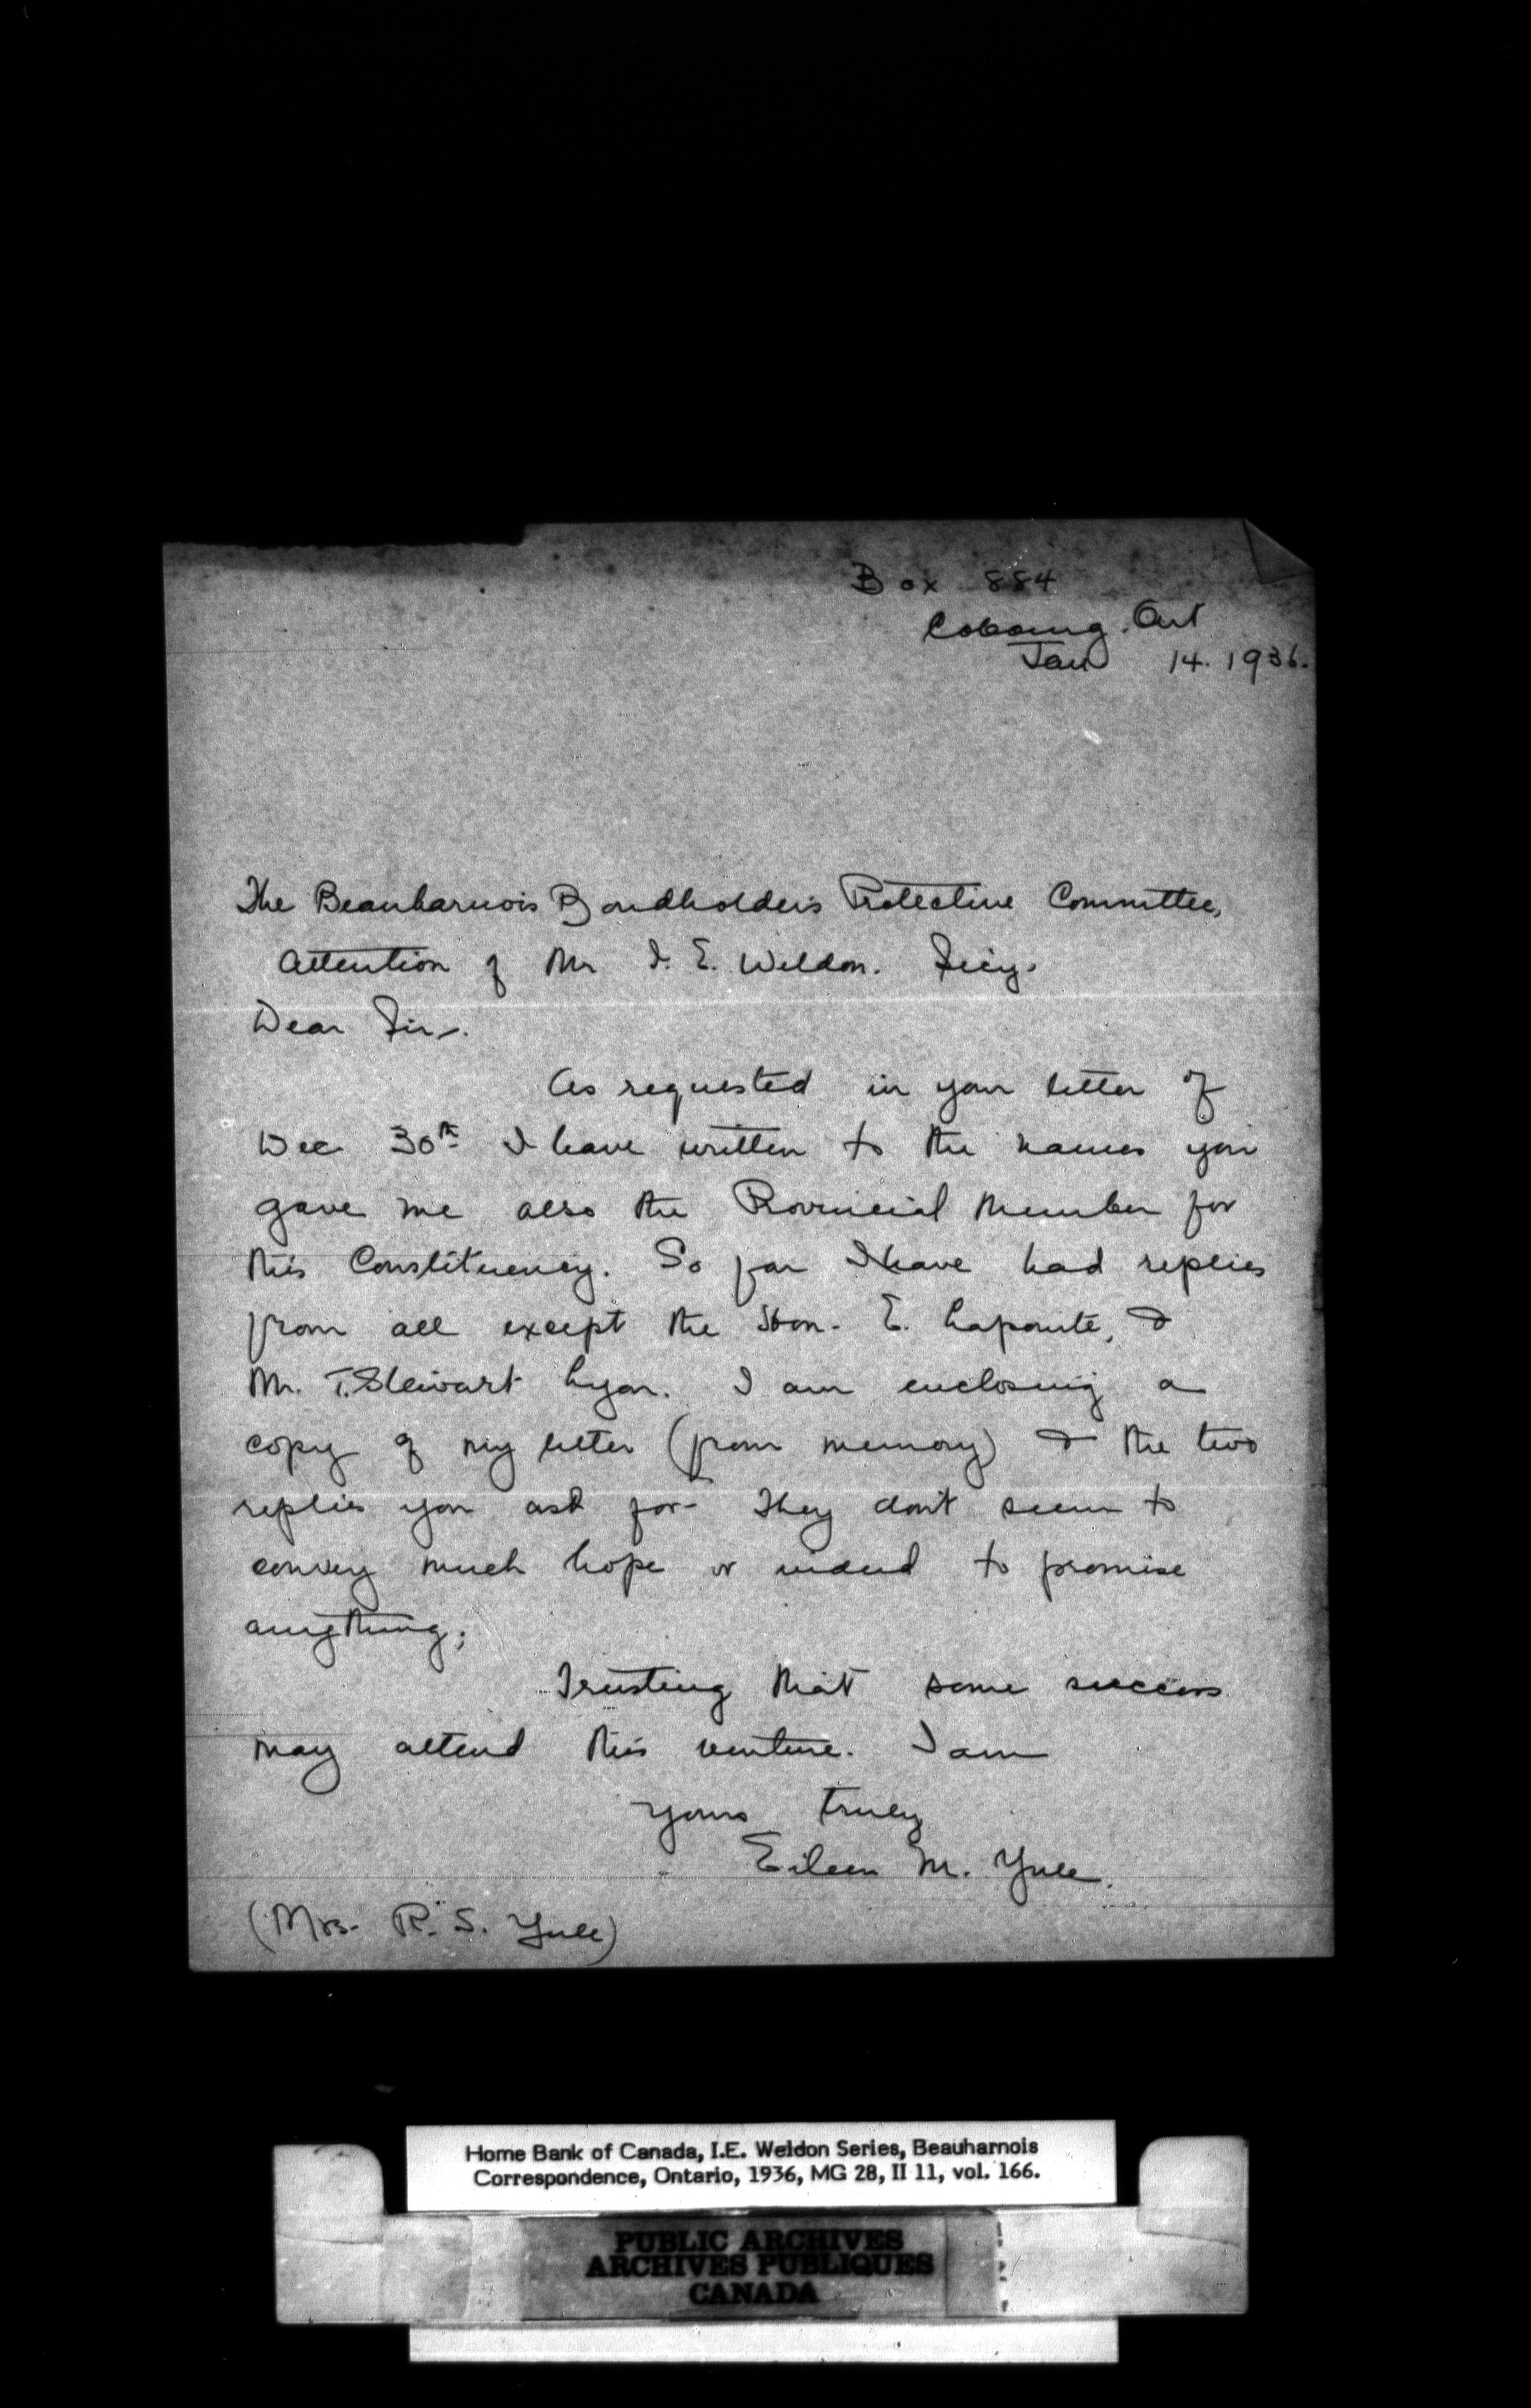 Box 884
Cobourg. Ont
Jan 14. 1936.
The Beauharnois Bondholders Protective Committee,
Attention of Mr I. E. Weldon. Secy.
Dear Sir,.
As requested in your letter of
Dec 30th I have written to the names you
gave me also the Provincial Member for
this Constituency. So far I have had replies
from all except the Hon. E. Lapointe, &
Mr. T. Stewart Lyon. I am enclosing a
copy of my letter (from memory) & the two
replies you ask for- They don't seem to
convey much hope or indeed to promise
anything;
Trusting that some success
may attend this venture. I am
Yours truly
Eileen M. Yule.
(Mrs. R. S. Yule)
Home Bank of Canada, I.E. Weldon Series, Beauharnois
Correspondence, Ontario, 1936, MG 28, II 11, vol. 166.
PUBLIC ARCHIVES
ARCHIVES PUBLIQUES
CANADA